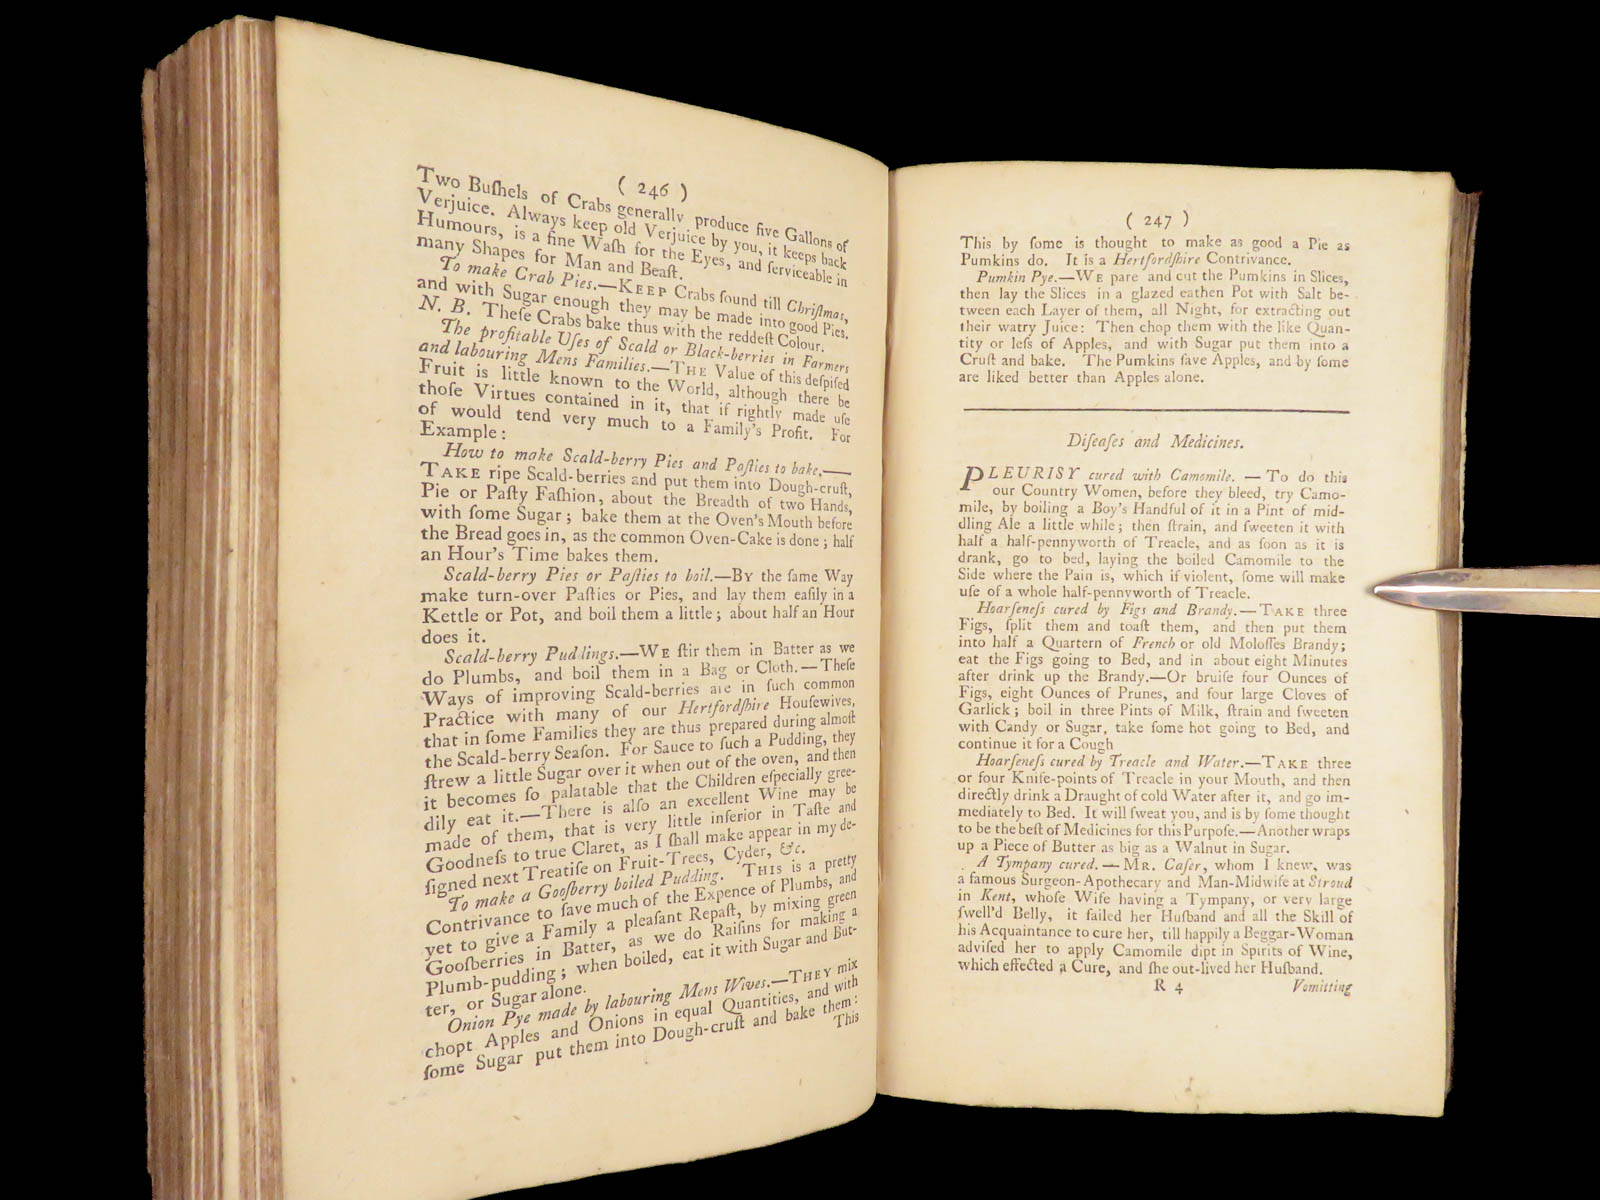 ( 246 )
Two Buſhels of Crabs generally produce five Gallons of
Verjuice. Always keep old Verjuice by you, it keeps back
Humours, is a fine Waſh for the Eyes, and ſerviceable in
many Shapes for Man and Beaſt.
To make Crab Pies.—KEEP Crabs ſound till Chriſtmas,
and with Sugar enough they may be made into good Pies.
N. B. Theſe Crabs bake thus with the reddeſt Colour.
The profitable Uſes of Scald or Black-berries in Farmers
and labouring Mens Families.—THE Value of this deſpiſed
Fruit is little known to the World, although there be
thoſe Virtues contained in it, that if rightly made uſe
of would tend very much to a Family's Profit. For
Example:
How to make Scald-berry Pies and Paſties to bake.—
TAKE ripe Scald-berries and put them into Dough-cruſt,
Pie or Paſty Faſhion, about the Breadth of two Hands,
with ſome Sugar; bake them at the Oven's Mouth before
the Bread goes in, as the common Oven-Cake is done; half
an Hour's Time bakes them.
Scald-berry Pies or Paſties to boil.—BY the ſame Way
make turn-over Paſties or Pies, and lay them eaſily in a
Kettle or Pot, and boil them a little; about half an Hour
does it.
Scald-berry Puddings.—WE ſtir them in Batter as we
do Plumbs, and boil them in a Bag or Cloth.—Theſe
Ways of improving Scald-berries are in ſuch common
Practice with many of our Hertfordſhire Houſewives,
that in ſome Families they are thus prepared during almoſt
the Scald-berry Seaſon. For Sauce to ſuch a Pudding, they
ſtrew a little Sugar over it when out of the oven, and then
it becomes ſo palatable that the Children eſpecially gree-
dily eat it.—There is alſo an excellent Wine may be
made of them, that is very little inferior in Taſte and
Goodneſs to true Claret, as I ſhall make appear in my de-
ſigned next Treatiſe on Fruit-Trees, Cyder, &c.
To make a Gooſberry boiled Pudding. THIS is a pretty
Contrivance to ſave much of the Expence of Plumbs, and
yet to give a Family a pleaſant Repaſt, by mixing green
Gooſberries in Batter, as we do Raiſins for making a
Plumb-pudding; when boiled, eat it with Sugar and But-
ter, or Sugar alone.
Onion Pye made by labouring Mens Wives.—THEY mix
chopt Apples and Onions in equal Quantities, and with
ſome Sugar put them into Dough-cruſt and bake them:
This
( 247 )
This by ſome is thought to make as good a Pie as
Pumkins do. It is a Hertfordſhire Contrivance.
Pumkin Pye.—WE pare and cut the Pumkins in Slices,
then lay the Slices in a glazed eathen Pot with Salt be-
tween each Layer of them, all Night, for extracting out
their watry Juice: Then chop them with the like Quan-
tity or leſs of Apples, and with Sugar put them into a
Cruſt and bake. The Pumkins ſave Apples, and by ſome
are liked better than Apples alone.
Diſeaſes and Medicines.
PLEURISY cured with Camomile. — To do this
our Country Women, before they bleed, try Camo-
mile, by boiling a Boy's Handful of it in a Pint of mid-
dling Ale a little while; then ſtrain, and ſweeten it with
half a half-pennyworth of Treacle, and as ſoon as it is
drank, go to bed, laying the boiled Camomile to the
Side where the Pain is, which if violent, ſome will make
uſe of a whole half-pennyworth of Treacle.
Hoarſeneſs cured by Figs and Brandy.—TAKE three
Figs, ſplit them and toaſt them, and then put them
into half a Quartern of French or old Moloſſes Brandy;
eat the Figs going to Bed, and in about eight Minutes
after drink up the Brandy.—Or bruiſe four Ounces of
Figs, eight Ounces of Prunes, and four large Cloves of
Garlick; boil in three Pints of Milk, ſtrain and ſweeten
with Candy or Sugar, take ſome hot going to Bed, and
continue it for a Cough
Hoarſeneſs cured by Treacle and Water.—TAKE three
or four Knife-points of Treacle in your Mouth, and then
directly drink a Draught of cold Water after it, and go im-
mediately to Bed. It will ſweat you, and is by ſome thought
to be the beſt of Medicines for this Purpoſe.—Another wraps
up a Piece of Butter as big as a Walnut in Sugar.
A Tympany cured. — MR. Caſer, whom I knew, was
a famous Surgeon-Apothecary and Man-Midwife at Stroud
in Kent, whoſe Wife having a Tympany, or very large
ſwell'd Belly, it failed her Huſband and all the Skill of
his Acquaintance to cure her, till happily a Beggar-Woman
adviſed her to apply Camomile dipt in Spirits of Wine,
which effected a Cure, and ſhe out-lived her Huſband.
R 4 Vomitting